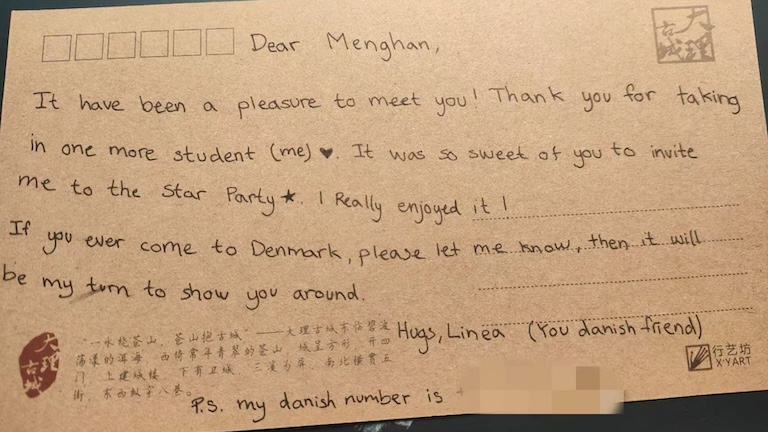 大理
古城
Dear Menghan,
It have been a pleasure to meet you! Thank you for taking
in one more student (me) ♥. It was so sweet of you to invite
me to the Star Party ★. I Really enjoyed it!
If you ever come to Denmark, please let me know, then it will
be my turn to show you around.
Hugs, Linea (You danish friend)
大理
古城
"一水绕苍山,苍山抱古城"——大理古城东临碧波
荡漾的洱海,西倚常年青翠的苍山,城呈方形,开四
门,上建城楼,下有卫城,三溪为屏,南北横贯五
街,东西纵穿八巷。
行艺坊
X'YART
P.S. my danish number is